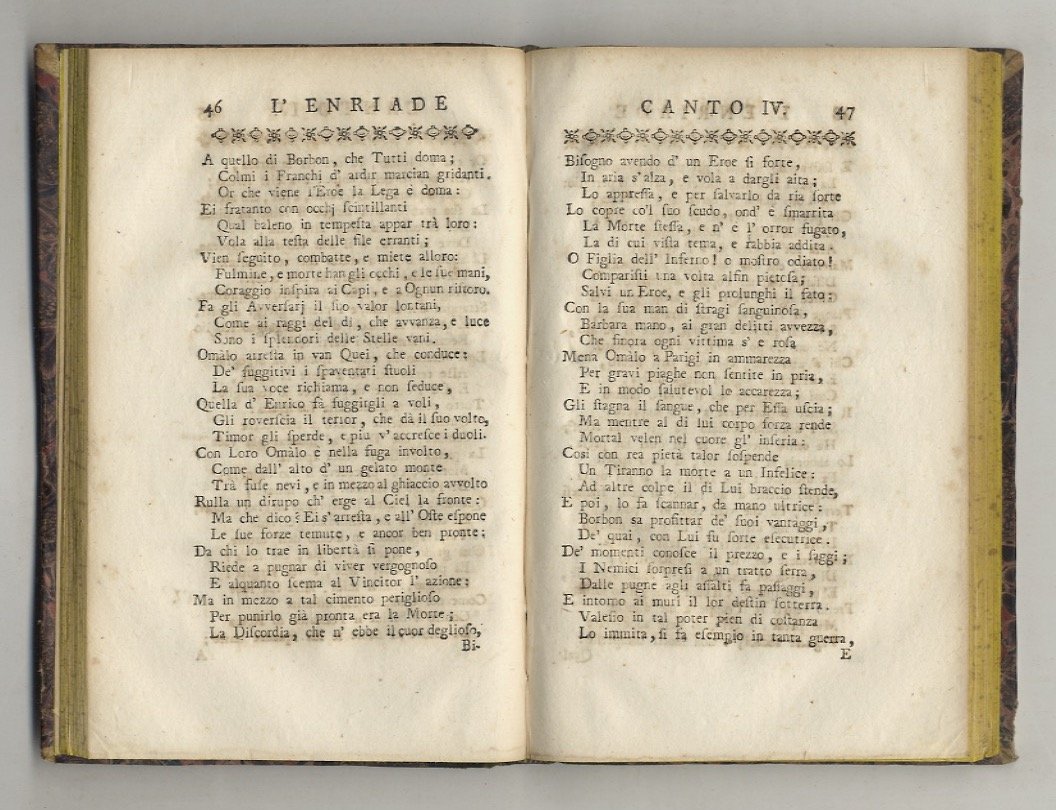 46 L' ENRIADE
A quello di Borbon, che Tutti doma;
Colmi i Franchi d' ardir marcian gridanti.
Or che viene l'Eroe la Lega è doma:
Ei fratanto con occhj ſcintillanti
Qual baleno in tempeſta appar trà loro:
Vola alla teſta delle file erranti;
Vien ſeguito, combatte, e miete alloro:
Fulmine, e morte han gli occhi, e le ſue mani,
Coraggio inſpira ai Capi, e a Ognun riſtoro.
Fa gli Avverſarj il ſuo valor lontani,
Come ai raggi del dì, che avvanza, e luce
Sono i ſplendori delle Stelle vani.
Omàlo arreſta in van Quei, che conduce:
De' fuggitivi i ſpaventati ſtuoli
La ſua voce richiama, e non ſeduce,
Quella d' Enrico fà fuggirgli a voli,
Gli roverſcia il terror, che dà il ſuo volto,
Timor gli ſperde, e più v' accreſce i duoli.
Con Loro Omàlo è nella fuga involto,
Come dall' alto d' un gelato monte
Trà fuſe nevi, e in mezzo al ghiaccio avvolto
Rulla un dirupo ch' erge al Ciel la fronte:
Ma che dico? Ei s' arreſta, e all' Oſte eſpone
Le ſue forze temute, e ancor ben pronte;
Da chi lo trae in libertà ſi pone,
Riede a pugnar di viver vergognoſo
E alquanto ſcema al Vincitor l' azione:
Ma in mezzo a tal cimento periglioſo
Per punirlo già pronta era la Morte;
La Diſcordia, che n' ebbe il cuor doglioſo,
Bi-
CANTO IV. 47
Biſogno avendo d' un Eroe ſi forte,
In aria s' alza, e vola a dargli aita;
Lo appreſſa, e per ſalvarlo da ria ſorte
Lo copre co'l ſuo ſcudo, ond' è ſmarrita
La Morte ſteſſa, e n' e l' orror fugato,
La di cui viſta tema, e rabbia addita.
O Figlia dell' Inferno! o moſtro odiato!
Compariſti una volta alfin pietoſa;
Salvi un Eroe, e gli prolunghi il fato:
Con la ſua man di ſtragi ſanguinoſa,
Barbara mano, ai gran delitti avvezza,
Che finora ogni vittima s' e roſa
Mena Omàlo a Parigi in ammarezza
Per gravi piaghe non ſentite in pria,
E in modo ſalutevol lo accarezza;
Gli ſtagna il ſangue, che per Eſſa uſcìa;
Ma mentre al di lui corpo forza rende
Mortal velen nel cuore gl' inſeria:
Così con rea pietà talor ſoſpende
Un Tiranno la morte a un Infelice:
Ad altre colpe il di Lui braccio ſtende,
E poi, lo fa ſcannar, da mano ultrice:
Borbon sa profittar de' ſuoi vantaggi,
De' quai, con Lui fu ſorte eſecutrice.
De' momenti conoſce il prezzo, e i ſaggi;
I Nemici ſorpreſi a un tratto ſerra,
Dalle pugne agli aſſalti fà paſſaggi,
E intorno ai muri il lor deſtin ſotterra.
Valeſio in tal poter pien di coſtanza
Lo immita, ſi fà eſempio in tanta guerra,
E